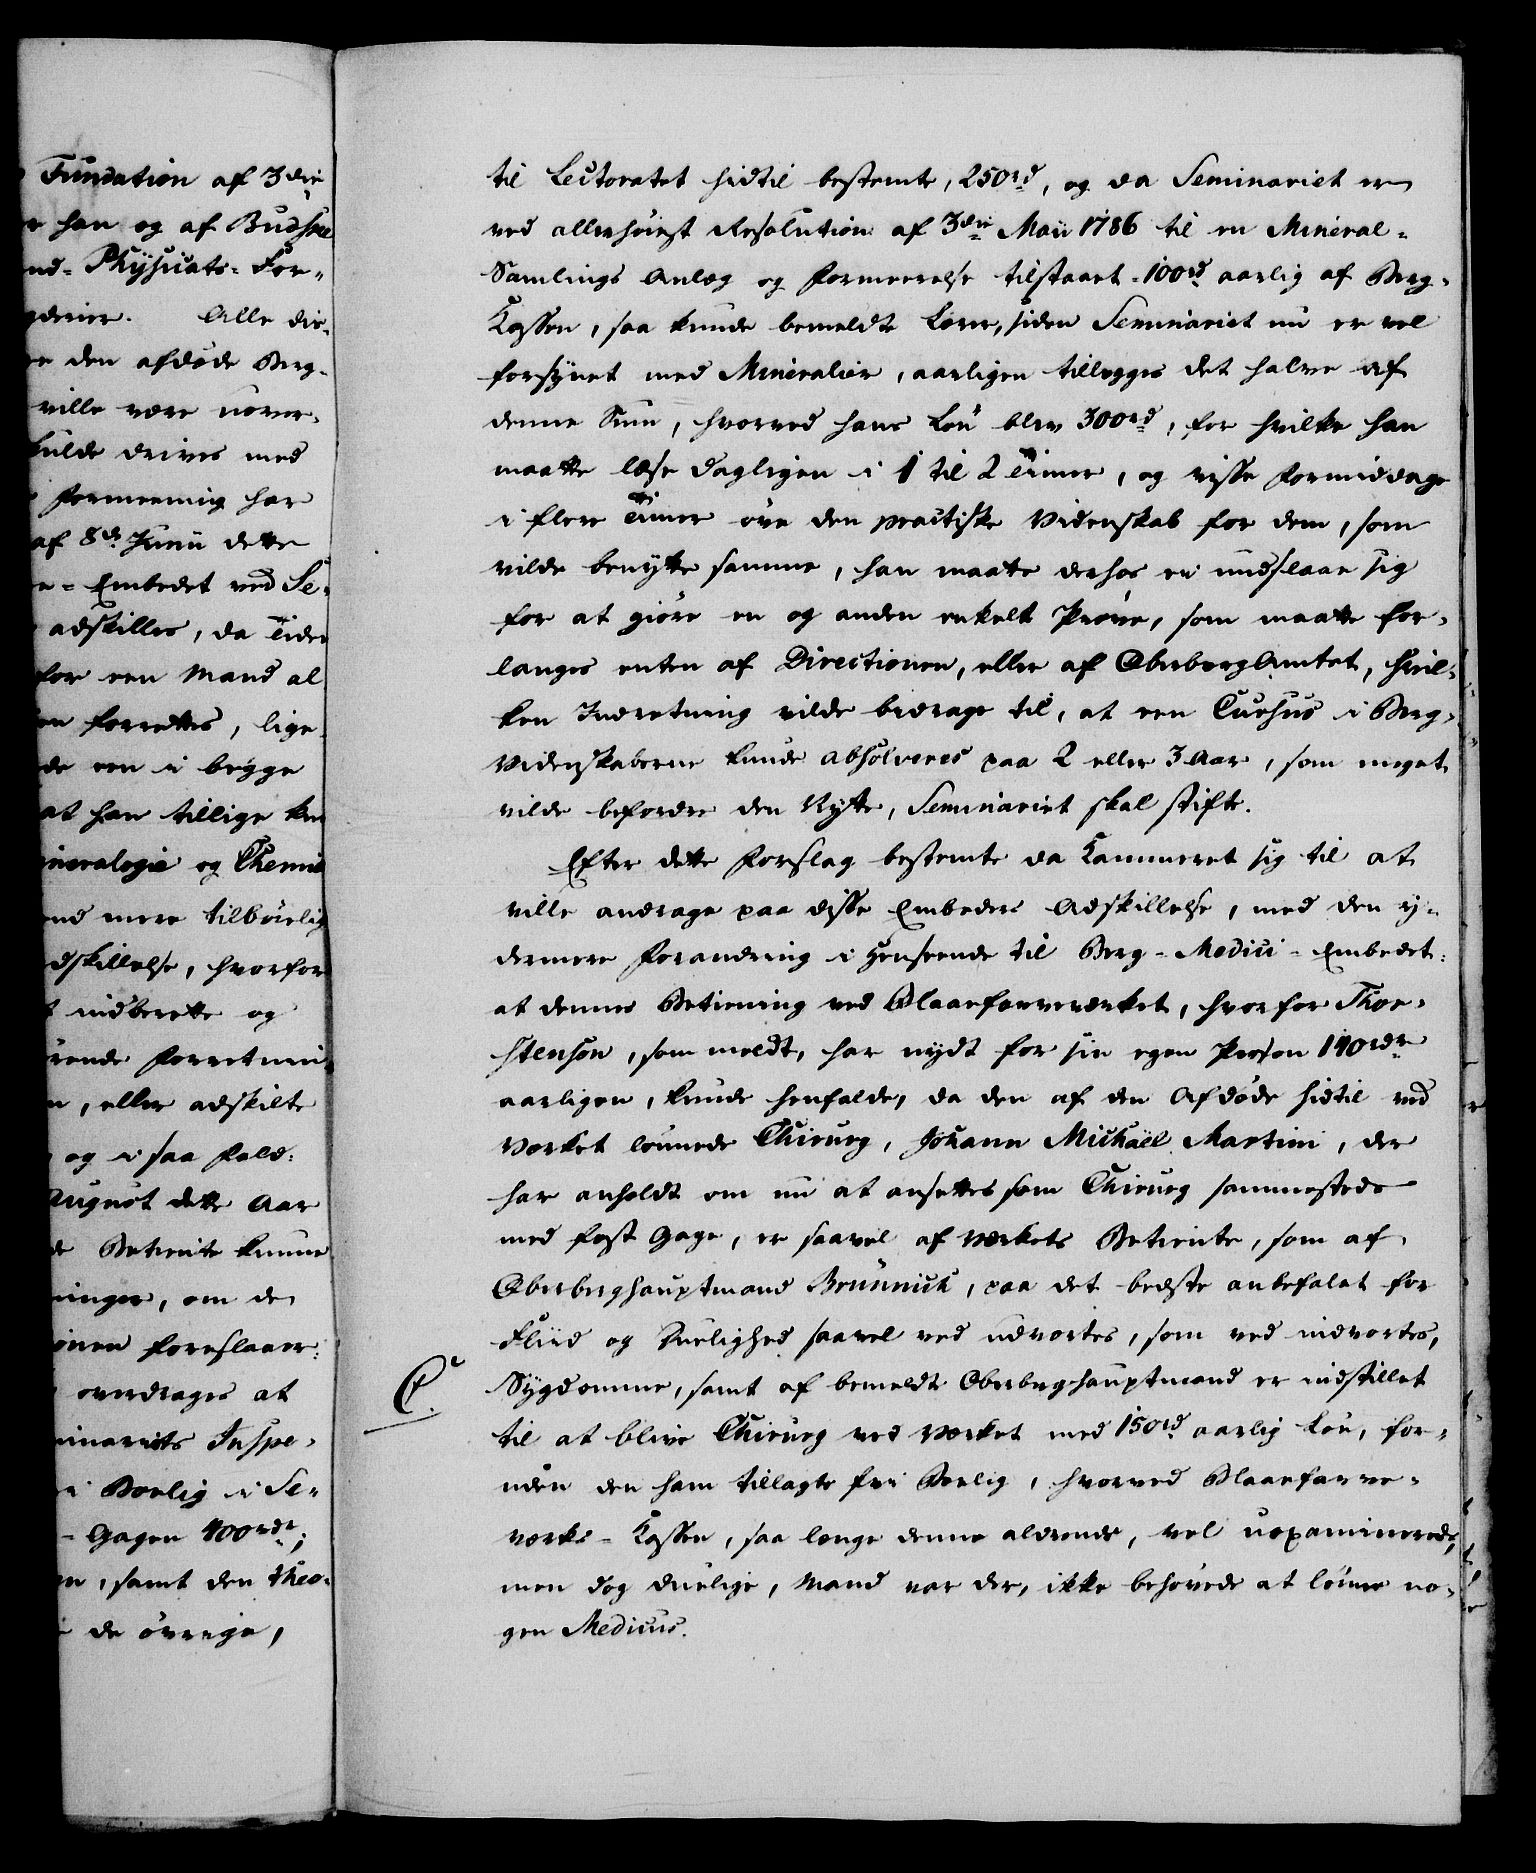 Fundation af 3die
han og af Budsee
nd- Physicats- For-
gderier. Alle die-
den afdøde Berg-
ville være uover-
kulde drives med
Formeening har
af 8de Junii dette
e- Embedet ved Se-
adskilles, da Tiden
for een Mand al
en forrettes, lige-
de een i begge
at han tillige kan
ineralogie og Chemie
end mere tilbørlig
dskillelse, hvorfor
indberette og
ørende Forretnin-
n, eller adskilte
og i saa Fald:
August dette Aar
de Betiente kunne
ninger, om de
onen foreslaaer:
overdrages at
minariets Inspe-
i Boelig i Se-
- Gagen 400rdr;
en, samt den theo-
de øvrige,
til Lectoratet hidtil bestemte, 250rd, og da Seminariet er
ved allerhøiest Resolution af 3die Maii 1786 til en Mineral-
Samlings Anlæg og Formeerelse tilstaaet 100rd aarlig af Berg-
Kassen, saa kunde bemeldte Lærer, siden Seminariet nu er vel
forsynet med Mineralier, aarligen tillægges det halve af
denne Sum, hvorved hans Løn blev 300rd, for hvilke han
maatte læse dagligen i 1 til 2 Timer, og visse Formiddage
i flere Timer øve den practiske Videnskab for dem, som
vilde benytte samme, han maatte derhos ei undslaae sig
for at giøre en og anden enkelt Prøve, som maatte for-
langes enten af Directionen, eller af OberbergAmtet, hvil-
ken Indretning vilde bidrage til, at een Cursus i Berg-
Videnskaberne kunde absolveres paa 2 eller 3 Aar, som meget
vilde befordre den Nytte, Seminariet skal stifte.
Efter dette Forslag bestemte da Kammeret sig til at
ville andrage paa disse Embeders Adskillelse, med den y-
dermere Forandring i Henseende til Berg- Medici- Embedet:
at dennes Betiening ved Blaafarveværket, hvorfor Thor-
stenson, som meldt, har nydt for sin egen Person 140rdr
aarligen, kunde henfalde, da den af den Afdøde hidtil ved
Værket lønnede Chirurg, Johann Michaël Martini, der
har anholdt om nu at ansettes som Chirurg sammesteds
med fast Gage, er saavel af Værkets Betiente, som af
Oberberghauptmand Brünnich, paa det bedste anbefalet for
Fliid og Duelighed saavel ved udvortes, som ved indvortes,
C.
Sygdomme, samt af bemeldte Oberberghauptmand er indstillet
til at blive Chirurg ved Værket med 150rd aarlig Løn, for-
uden den ham tillagte fri Boelig, hvorved Blaafarve-
værks- Kassen, saa længe denne aldrende, vel uexaminerede,
men dog duelige, Mand var der, ikke behøvede at lønne no-
gen Medicus.